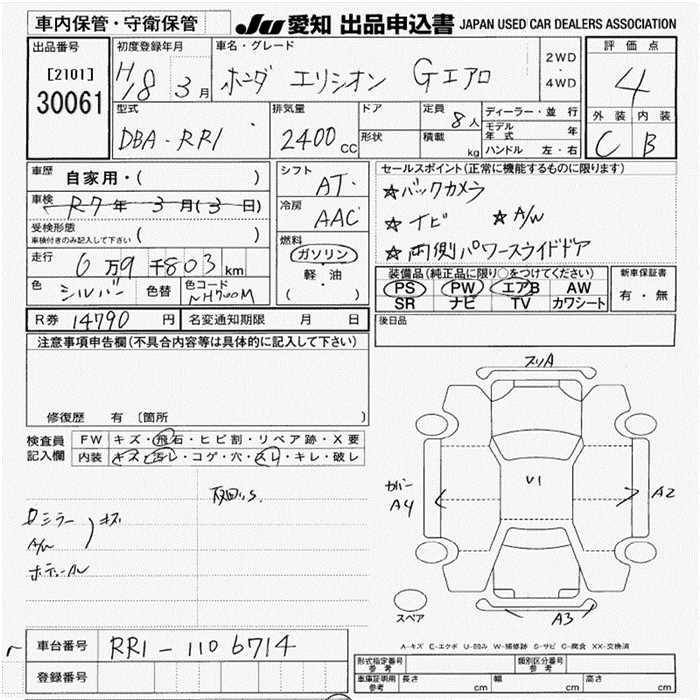 車内保管・守衛保管
JU 愛知 出品申込書 JAPAN USED CAR DEALERS ASSOCIATION
出品番号
[2101]
30061
初度登録年月
H18 3月
車名・グレード
ホンダ エリシオン Gエアロ
2WD
・
4WD
評価点
4
外装 内装
C B
型式
DBA-RR1
排気量
2400cc
ドア
形状
定員
8人
積載
kg
ディーラー・並行
モデル年式 年
ハンドル 左・右
車歴
自家用・( )
車検
R7年3月(3日)
受検形態
車検付きのみ記入して下さい ( )
走行
6万9千803km
色
シルバー
色替
色コード
NH700M
シフト
AT
冷房
AAC
燃料
ガソリン
・
軽・油
( )
セールスポイント(正常に機能するものに限ります)
☆バックカメラ
☆ナビ ☆A/W
☆両側パワースライドドア
装備品(純正品に限り○をつけてください)
PS PW エアB AW
SR ナビ TV カワシート
新車保証書
有・無
後日品
R券 14790円
名変通知期限 月 日
注意事項申告欄(不具合内容等は具体的に記入して下さい)
修復歴 有 〔箇所 〕
検査員記入欄
FW キズ・飛石・ヒビ割・リペア跡・X要
内装 キズ・汚レ・コゲ・穴・スレ・キレ・破レ
ミラー
A/W
キズ
スリA
カバー
A4
U1
A2
A3
スペア
A-キズ E-エクボ U-凹み W-補修跡 S-サビ C-腐食 XX-交換済
車台番号 RR1-1106714
登録番号
形式指定番号
参考
類別区分番号
参考
車庫証明用
参考
長さ cm 幅 cm 高さ cm